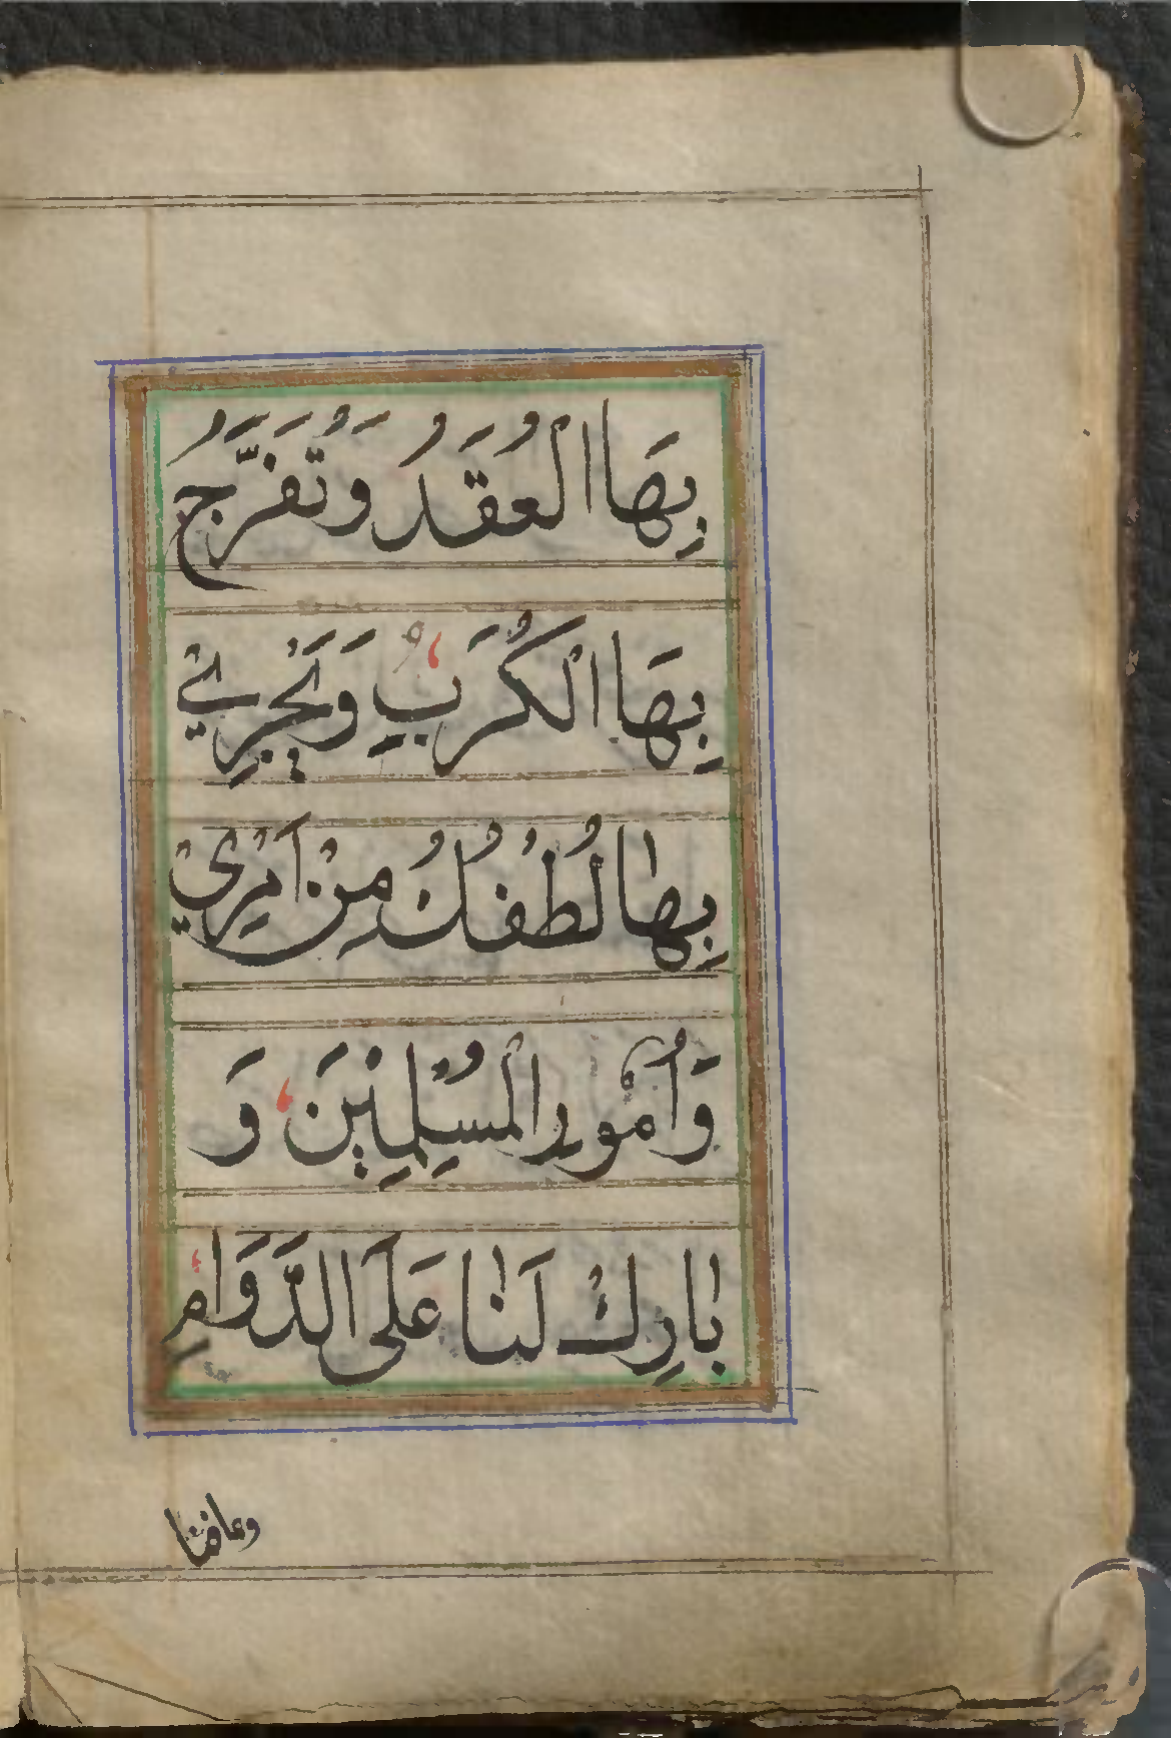 بِهَا الْعُقَدُ وَتُفَرَّجُ
بِهَا الْكُرَبُ وَيَجْرِيْ
بِهَا لُطْفُكَ مِنْ اَمْرِيْ
وَاُمُوْرِ الْمُسْلِمِيْنَ وَ
بَارِكْ لَنَا عَلَى الدَّوَامِ
وعافنا